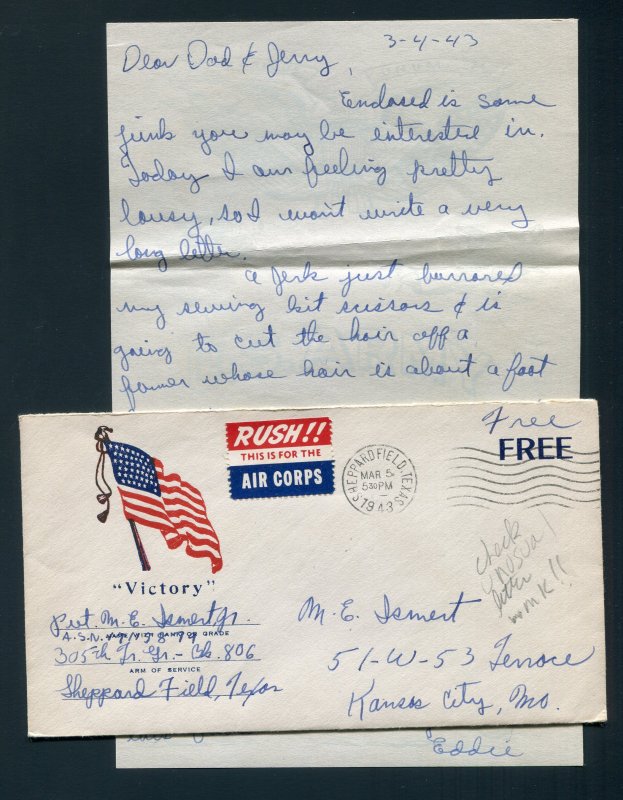 3-4-43
Dear Dad & Jerry,
Enclosed is some
junk you may be interested in.
Today I am feeling pretty
lousy, so I won't write a very
long letter.
A jerk just burrored
my sewing kit scissors & is
going to cut the hair off a
farmer whose hair is about a foot
Free
FREE
RUSH!!
THIS IS FOR THE
AIR CORPS
SHEPPARD FIELD, TEXAS
MAR 5
5 30 PM
1943
"Victory"
Pvt. M. E. Ismert Jr.
A.S.N.
305th Tr. Gr. - Bks. 806
ARM OF SERVICE
Sheppard Field, Texas
M. E. Ismert
51-W-53 Terrace
Kansas City, Mo.
check
unusual
letter
MK!!
Eddie